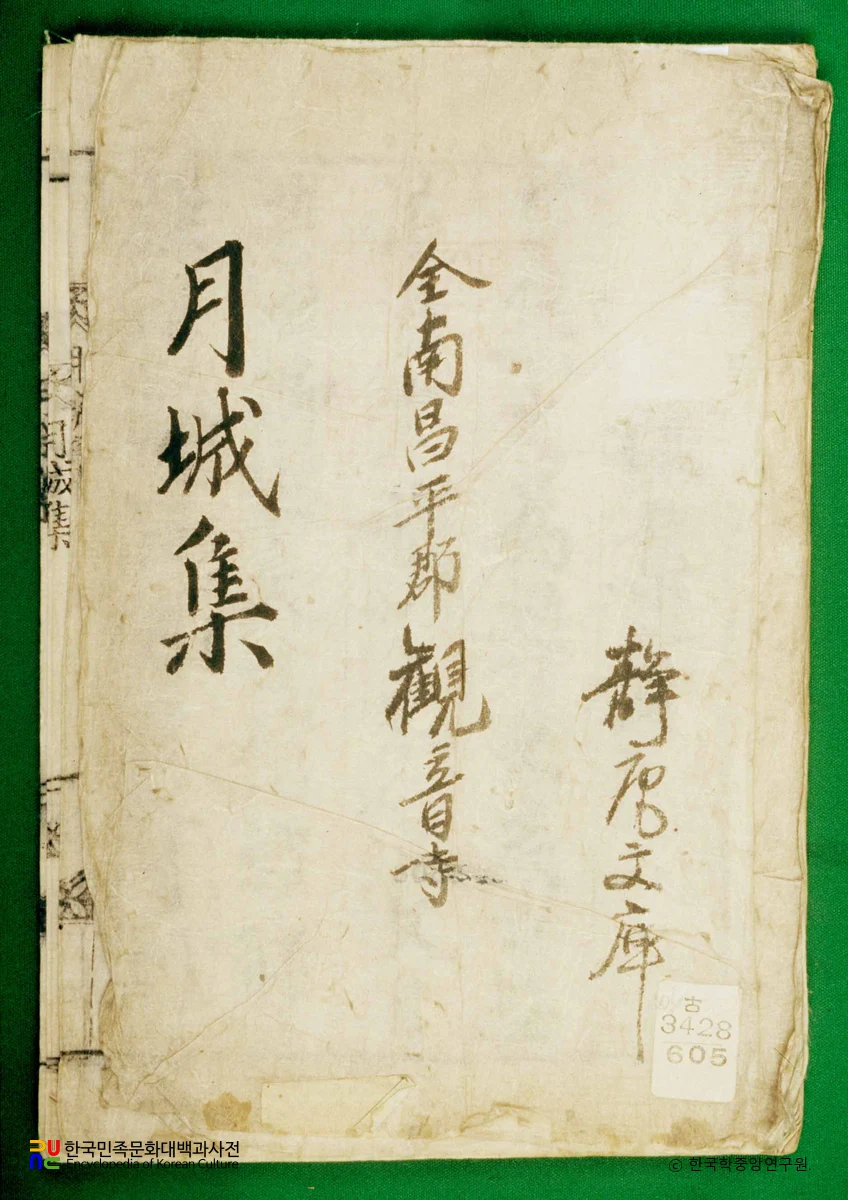 靜文庫
全南昌平郡観音寺
月城集
月城集
古
3428
605
한국민족문화대백과사전
Encyclopedia of Korean Culture
© 한국학중앙연구원